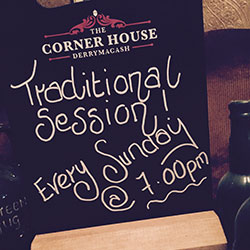 THE
CORNER HOUSE
DERRYMAGASH
Traditional
Session!
Every Sunday
@ 7.00pm